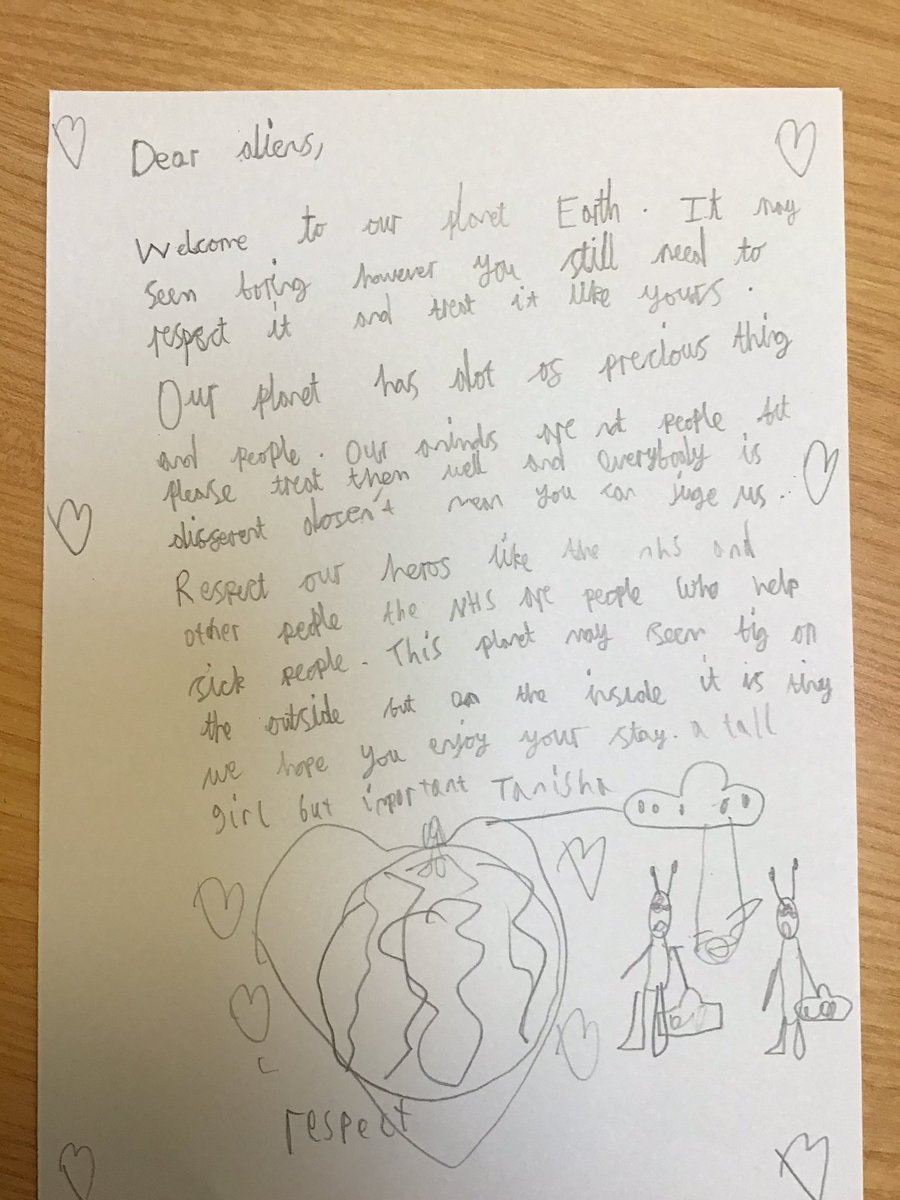 Dear aliens,
Welcome to our planet Earth. It may
seen boring however you still need to
respect it and treat it like yours.
Our planet has alot of precious thing
and people. Our animds are not people but
please treat them well and everybody is
different dosen't mean you can juge us.
Respect our heros like the nhs and
other people the NHS are people who help
sick people. This planet may seem big on
the outside but on the inside it is tiny
we hope you enjoy your stay. a tall
girl but important Tanisha
respect